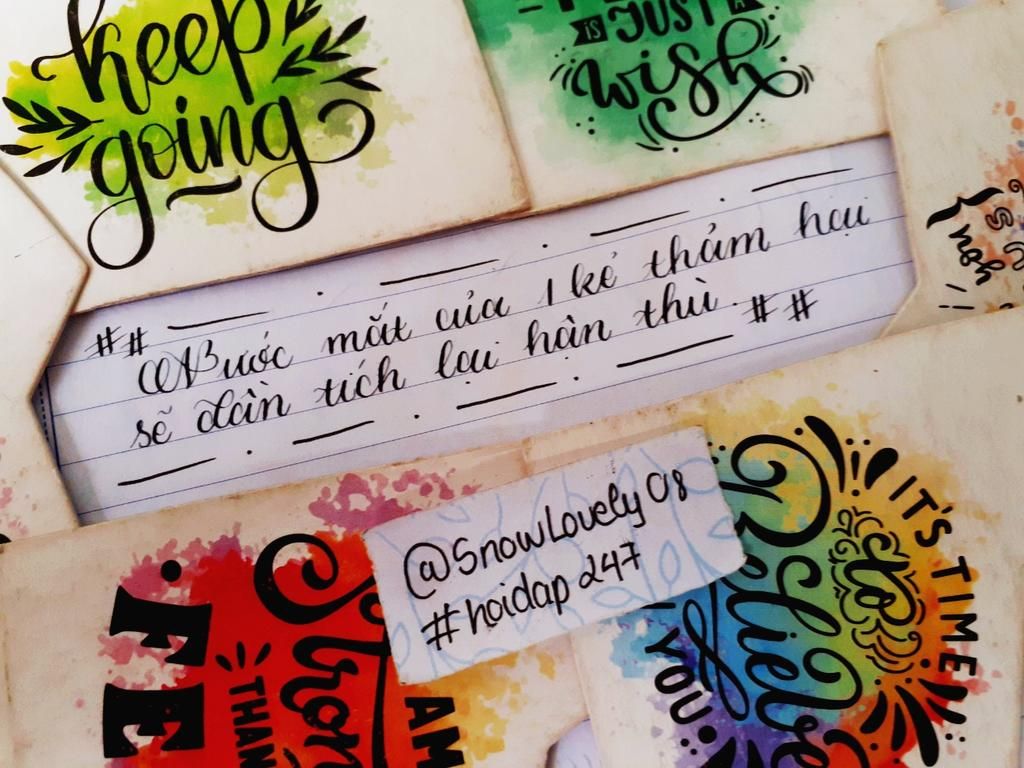 keep
going
IS JUST A
wish
## Nước mắt của 1 kẻ thảm hại
sẽ dần tích lại hận thù. ##
@SnowLovely 08
#hoidap 247
IT'S TIME
to
Believe
YOU
FE
Strong
THAN
AM